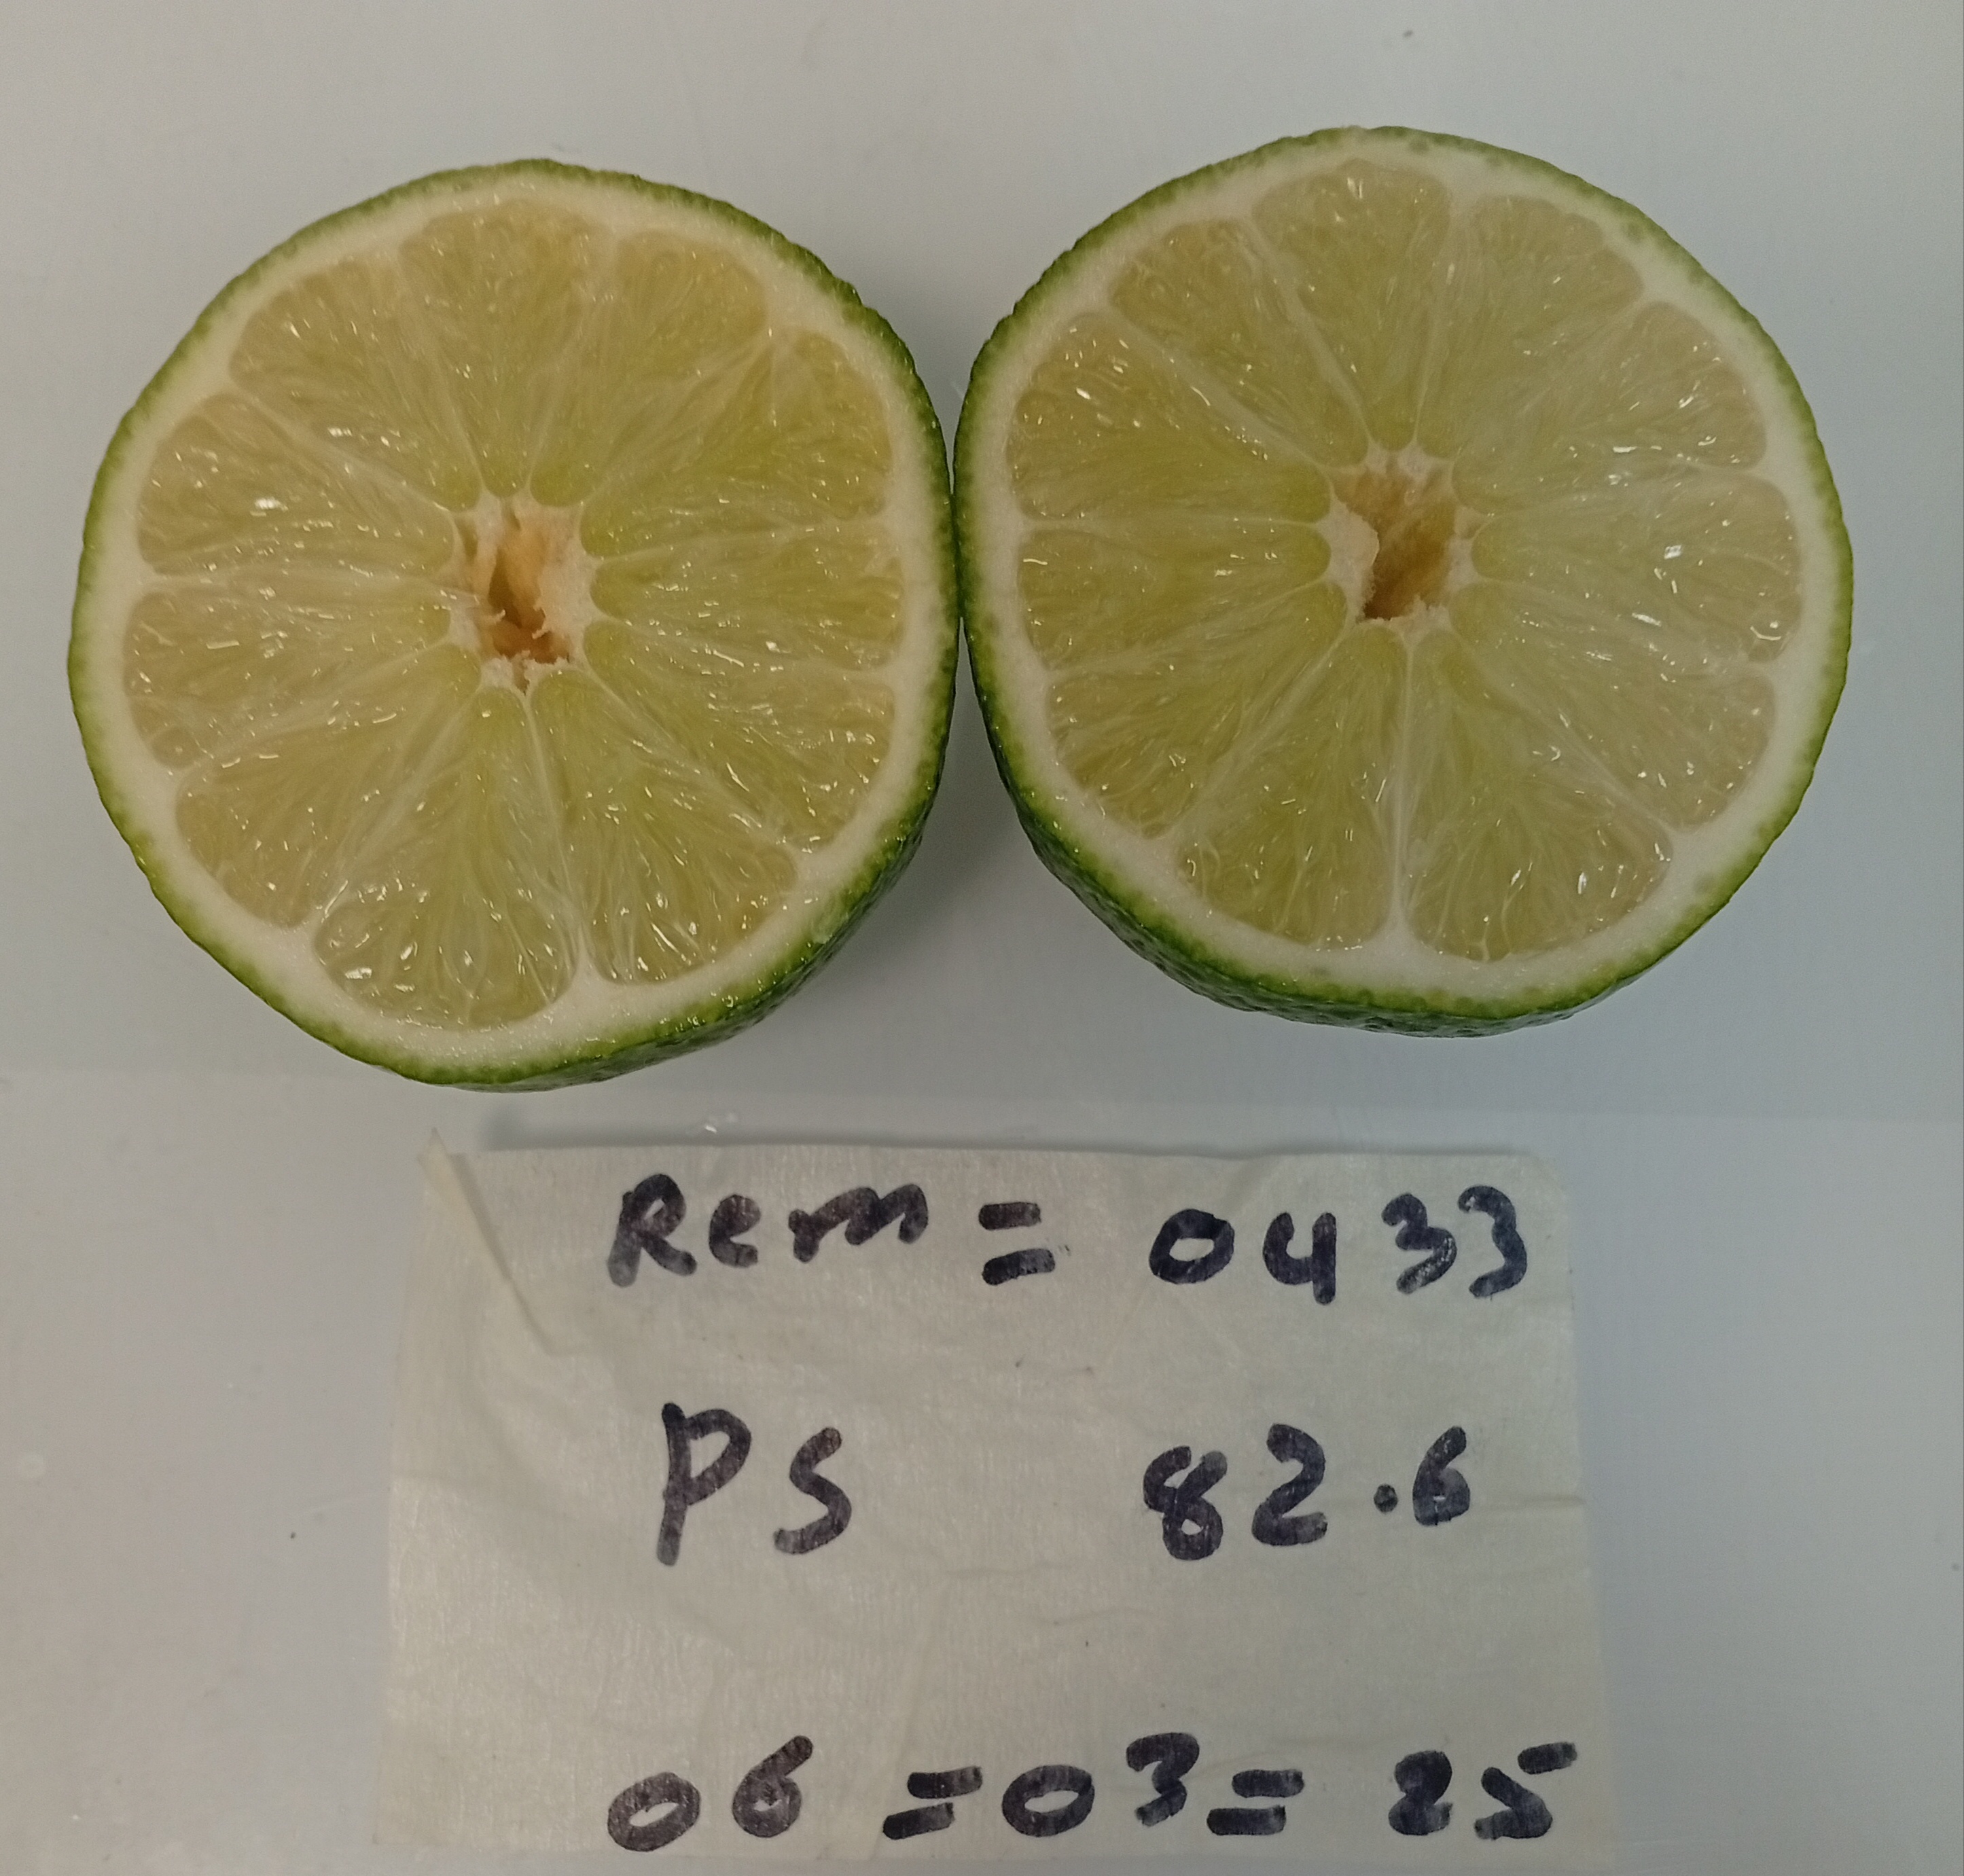 Rem = 0433
PS 82.6
06 = 03 = 25